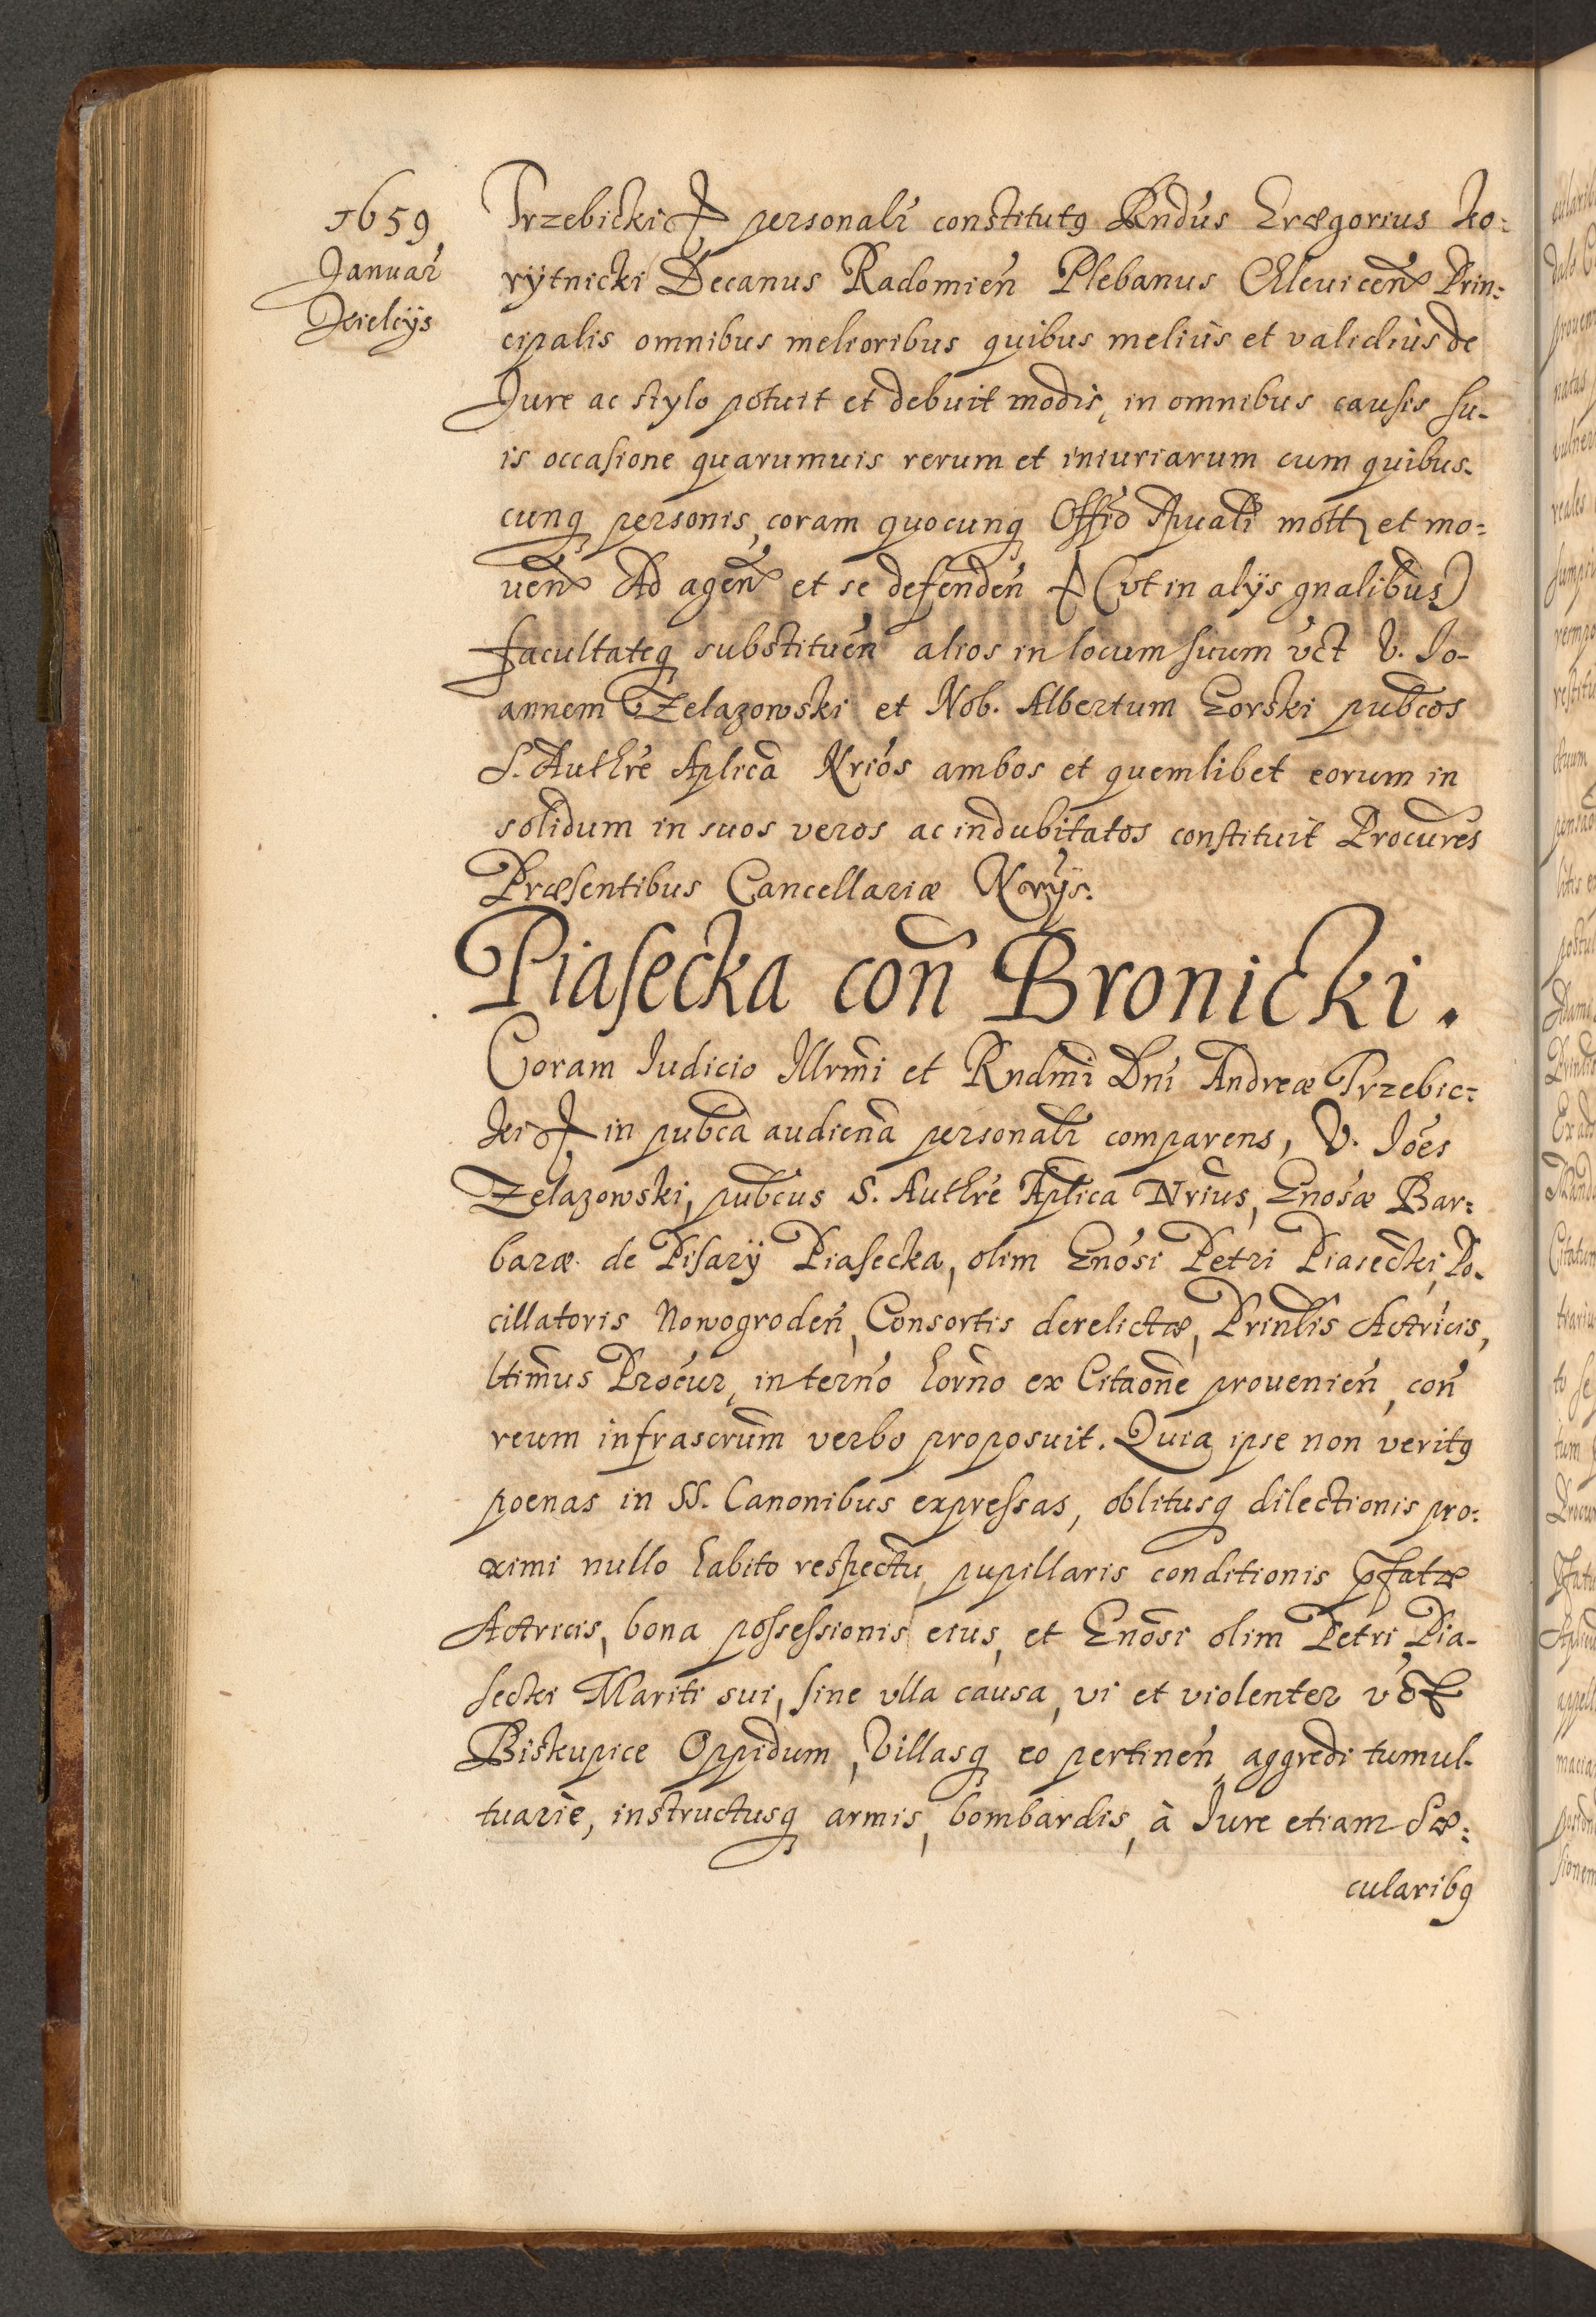 1659
Januar̃
Kielcÿs
Trzebicki &c personalr̃ constitutꝯ Rndus Græegorius Ko:
rÿtnicki Decanus Radomien̄ Plebanus Mleuicen̄ Prin:
cipalis omnibus melioribus quibus meliùs et validiùs de
Jure ac stylo potuit et debuit modis, in omnibus causis su-
is occasione quarumuis rerum et iniuriarum cum quibus-
cunq personis, coram quocunq Offõ Spuali mott et mo:
uen̄ Ad agen̄ et se defenden̄ &c (vt in alÿs gnalibus)
facultateq substituen̄ alios in locum suum vct V. Jo-
annem Zelazowski et Nob. Albertum Gorski pubcos
S. Authre Aplica Nrios ambos et quemlibet eorum in
solidum in suos veros ac indubitatos constituit Procures
Præsentibus Cancellariæ Nrÿs.
Piasecka con̄ Bronicki.
Coram Judicio Illrmi et Rndmi Dni Andreæ Trzebic:
ki &c in pubca audiena personalr̃ comparens, V. Joes
Zelazowski, pubcus S. Authre Aplica Nrius, Gnosæ Bar:
baræ de Pisarÿ Piasecka, olim Gnosi Petri Piasecki, Po-
cillatoris Nowogroden̄, Consortis derelictæ, Prinlis Actricis,
ltimus Procur, in terno horno ex Citaone prouenien̄, con̄
reum infrascrum verbo proposuit. Quia ipse non veritꝯ
poenas in SS. Canonibus expressas, oblitusq dilectionis pro:
ximi nullo habito respectu, pupillaris conditionis pfatæ
Actricis, bona possessionis eius, et Gnosi olim Petri Pia-
secki Mariti sui, sine vlla causa, vi et violenter vct
Biskupice Oppidum, Villasq eo pertinen̄ aggredi tumul-
tuariè, instructusq armis, bombardis, à Jure etiam Sæ:
cularibꝯ